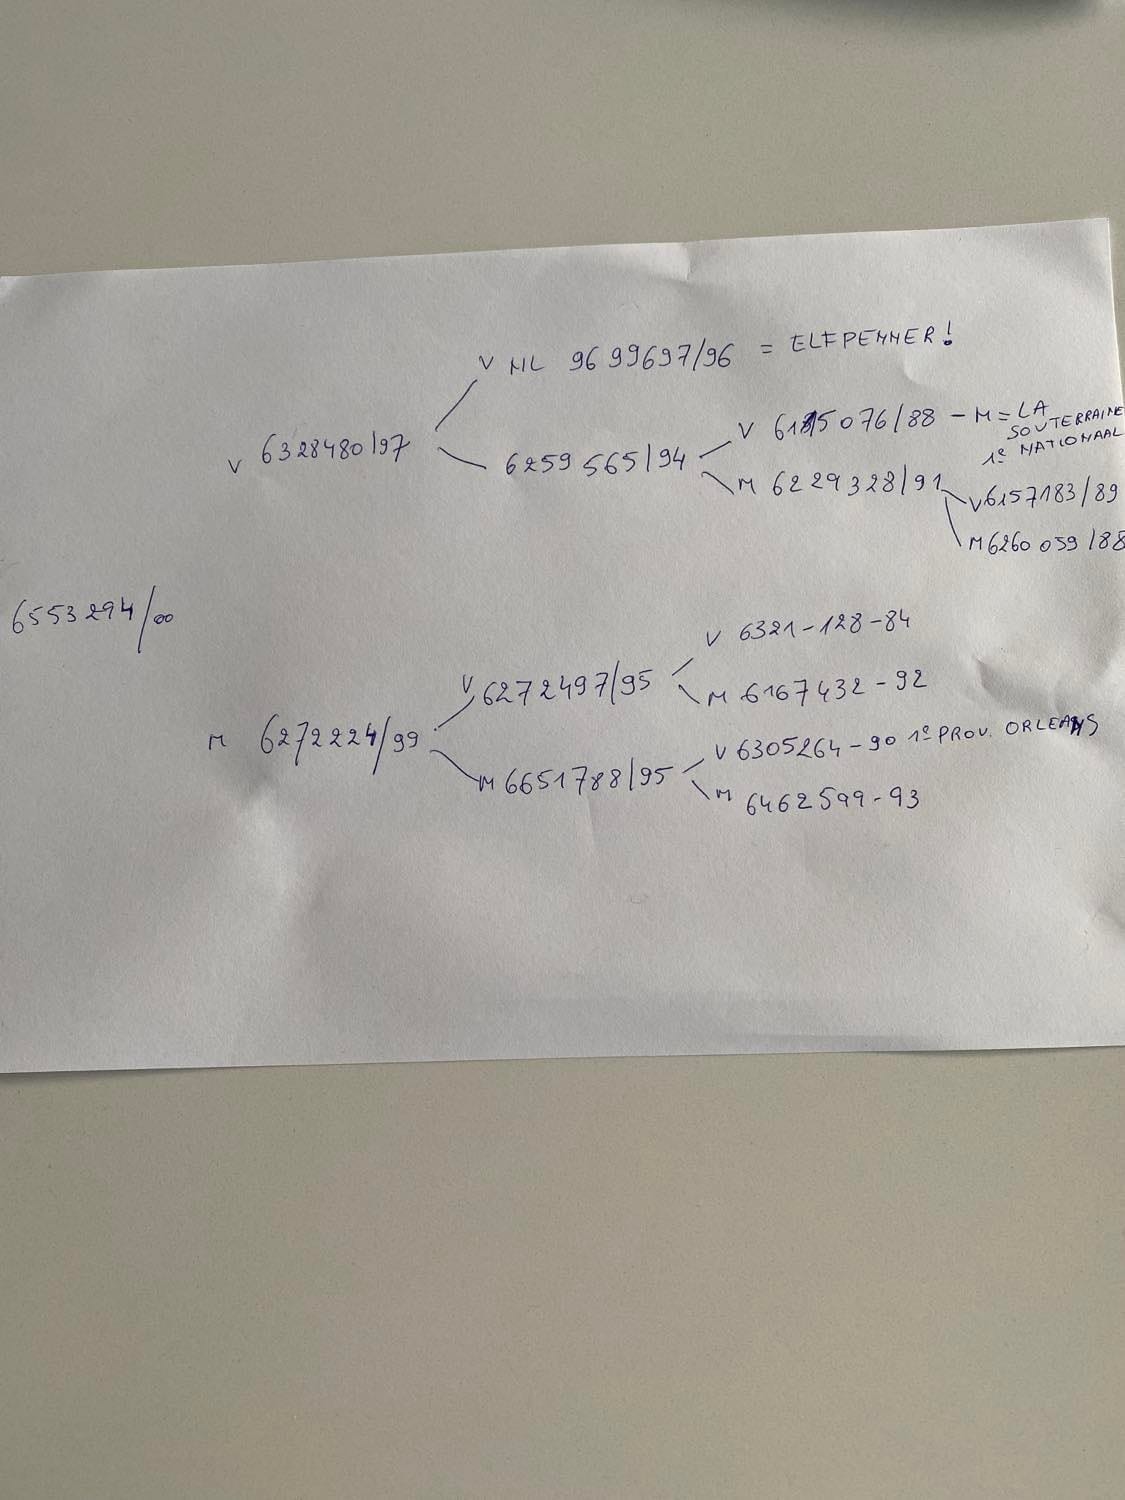 V NL 9699697/96 = ELFPENNER!
V 6328480/97
6259565/94
V 6185076/88 - M = LA
SOUTERRAINE
1e NATIONAAL
M 6229328/91
V 6157183/89
M 6260059/88
6553294/00
M 6272224/99
V 6272497/95
V 6321-128-84
M 6167432-92
M 6651788/95
V 6305264-90 1e PROV. ORLEANS
M 6462599-93